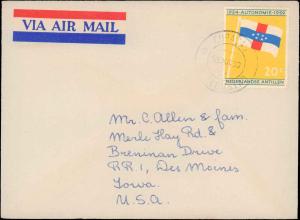 VIA AIR MAIL
1954 AUTONOMIE 1959
20 c
NEDERLANDSE ANTILLEN
Mr. C. Allen & fam.
Merle Hay Rd. &
Breninan Drive
R.R. 1, Des Moines
Iowa.
U.S.A.